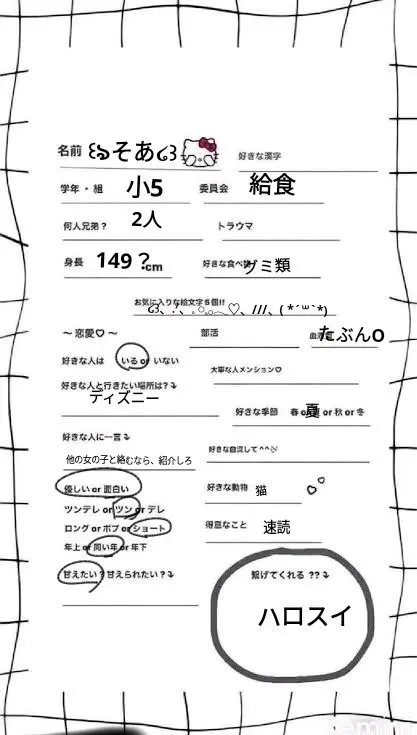 名前 ꒰ঌそあ໒꒱
好きな漢字
学年・組 小5 委員会 給食
何人兄弟? 2人 トラウマ
身長 149? .cm 好きな食べ物 グミ類
お気に入りな絵文字5個!!
～ 恋愛♡ ～ 部活 たぶんO
好きな人は いる or いない
大事な人メンション♡
好きな人と行きたい場所は?⤵
ディズニー
好きな季節 春 or 夏 or 秋 or 冬
好きな人に一言⤵
他の女の子と絡むなら、紹介しろ
好きな曲流して^^
優しい or 面白い
好きな動物 猫
ツンデレ or ツン or デレ
ロング or ボブ or ショート
得意なこと 速読
年上 or 同い年 or 年下
甘えたい?甘えられたい?⤵
繋げてくれる ??⤵
ハロスイ